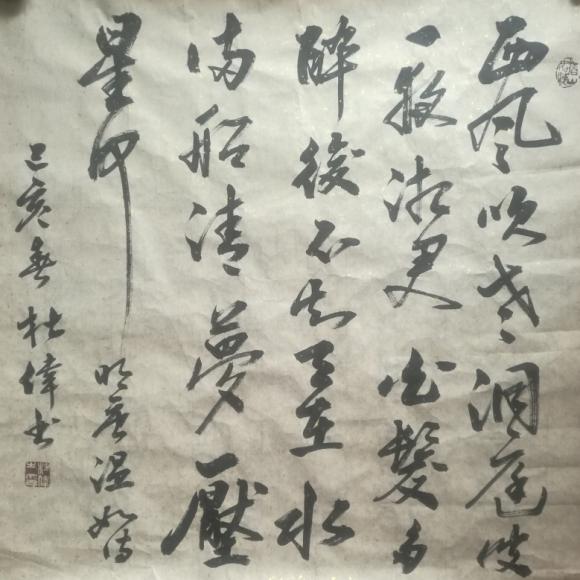 西風吹老洞庭波
一夜湘君白髮多
醉後不知天在水
滿船清夢壓
星河 明唐温如詩
己亥春杜偉书